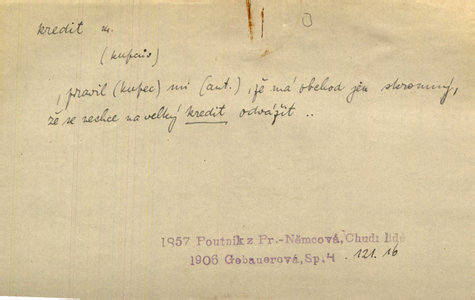 kredit m.
(kupcův)
, pravil (kupec) mi (aut.), že má obchod jen skromný,
že se nechce na velký kredit odvážit ..
1857 Poutník z Pr.-Němcová, Chudí lidé
1906 Gebauerová, Sp. 4 . 121.16